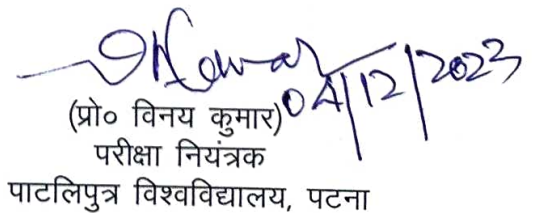 VKumar
04/12/2023
(प्रो० विनय कुमार)
परीक्षा नियंत्रक
पाटलिपुत्र विश्वविद्यालय, पटना